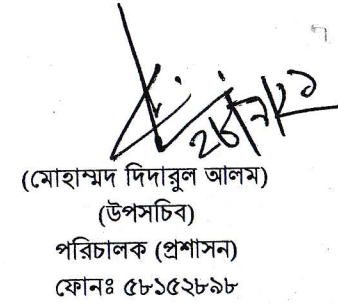 (মোহাম্মদ দিদারুল আলম)
(উপসচিব)
পরিচালক (প্রশাসন)
ফোনঃ ৫৮১৫২৮৯৮